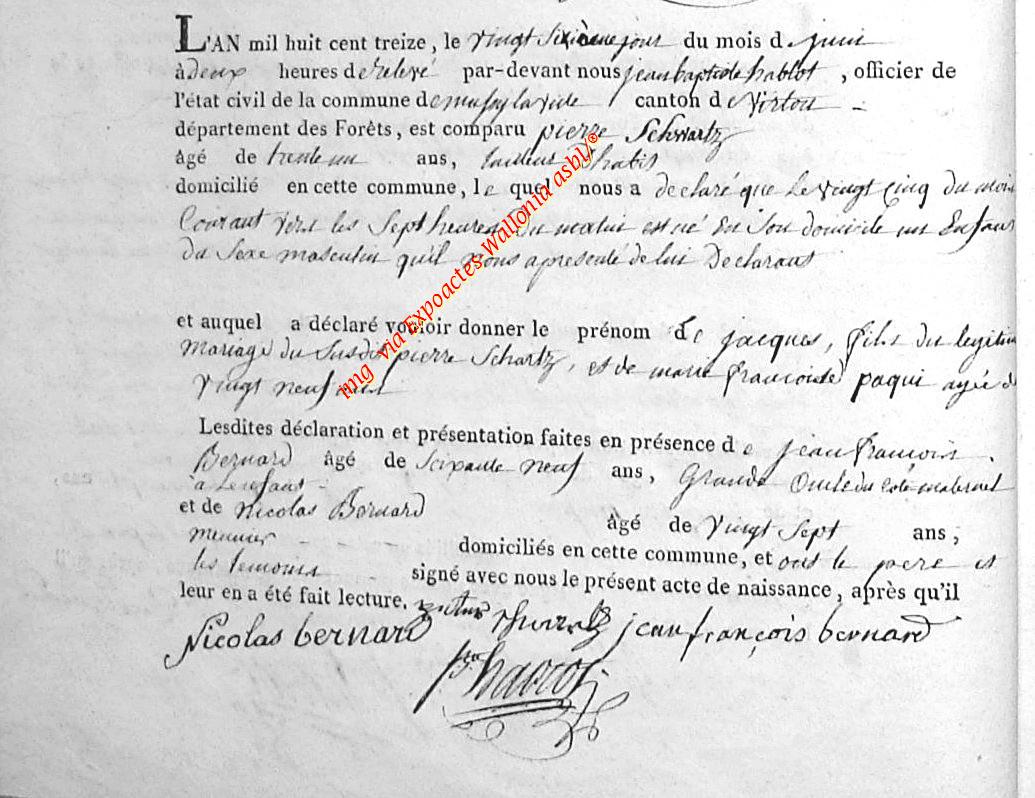 L'AN mil huit cent treize, le vingt sixième jour du mois de juin
à deux heures de relevé par-devant nous jean baptiste hablot, officier de
l'état civil de la commune de mussy la ville canton de Virton
département des Forêts, est comparu pierre Schwartz
âgé de trente un ans, tailleur d'habits
domicilié en cette commune, le quel nous a declaré que le vingt Cinq du mois
Courant vers les Sept heures du matin est né En Son domicile un Enfant
du Sexe masculin qu'il nous a presenté de lui Declarant
et auquel a déclaré vouloir donner le prénom de jacques, fils du legitime
mariage du Susdit pierre Schartz, et de marie francoise paqui agée de
vingt neuf ans
Lesdites déclaration et présentation faites en présence de jean françois
Bernard âgé de Soixante neuf ans, Grand Oncle du coté maternel
à L'enfant
et de Nicolas Bernard âgé de Vingt Sept ans,
meunier domiciliés en cette commune, et ont le père et
les temoins signé avec nous le présent acte de naissance, après qu'il
leur en a été fait lecture.
Nicolas bernard jean françois bernard
hablot
img via Expoactes Wallonia asbl/©